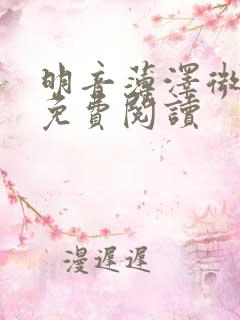 明音薄澤微
免費閱讀
漫遲遲